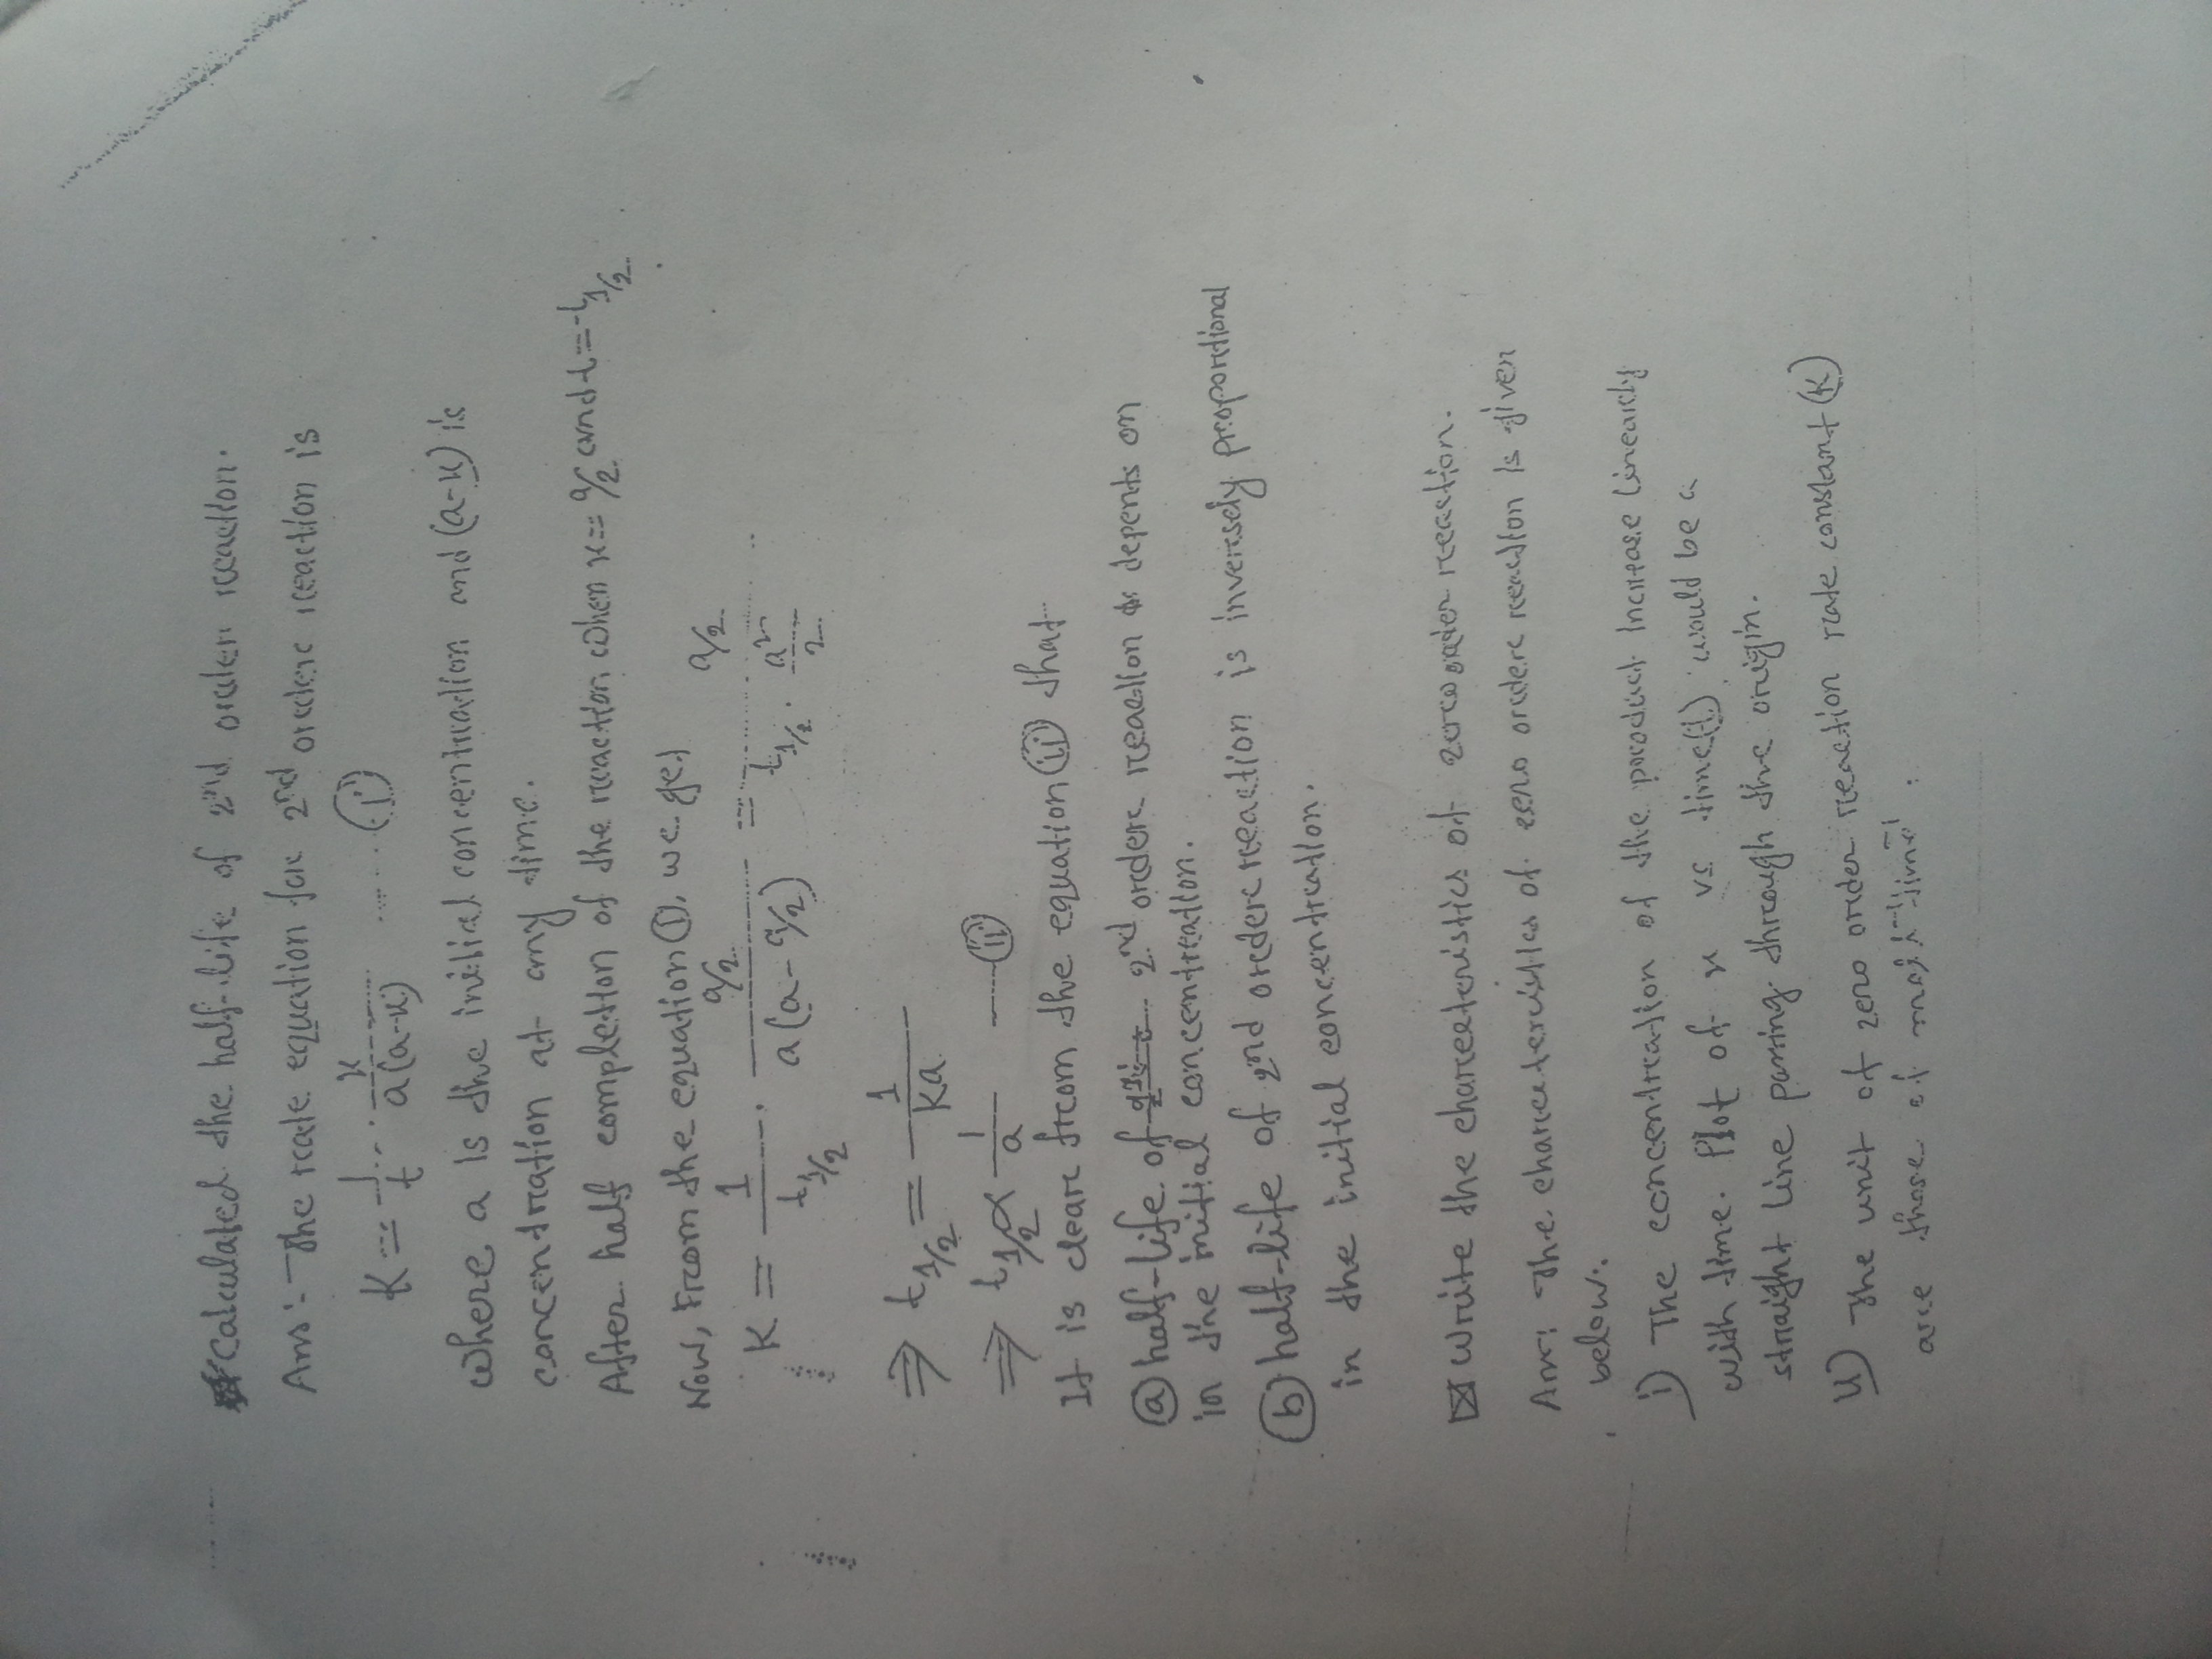 Calculated the half-life of 2nd order reaction.
Ans:- The rate equation for 2nd order reaction is
K = 1/t · x/a(a-x) ...... (i)
where a is the initial concentration and (a-x) is
concentration at any time.
After half completion of the reaction when x = a/2 and t = t1/2
Now, From the equation (i), we get
K = 1/t1/2 · (a/2)/(a(a-a/2)) = (a/2)/(t1/2 · a²/2)
⇒ t1/2 = 1/Ka
⇒ t1/2 ∝ 1/a ---- (ii)
It is clear from the equation (ii) that
(a) half-life of 2nd order reaction depents on
in the initial concentration.
(b) half-life of 2nd order reaction is inversely proportional
in the initial concentration.
Write the charecteristics of zero order reaction.
Ans: The charecteristics of zero order reaction is given
below:
i) The concentration of the product increase linearly
with time. Plot of x vs time(t) would be a
straight line passing through the origin.
ii) The unit of zero order reaction rate constant (K)
are those of mol L⁻¹ time⁻¹.